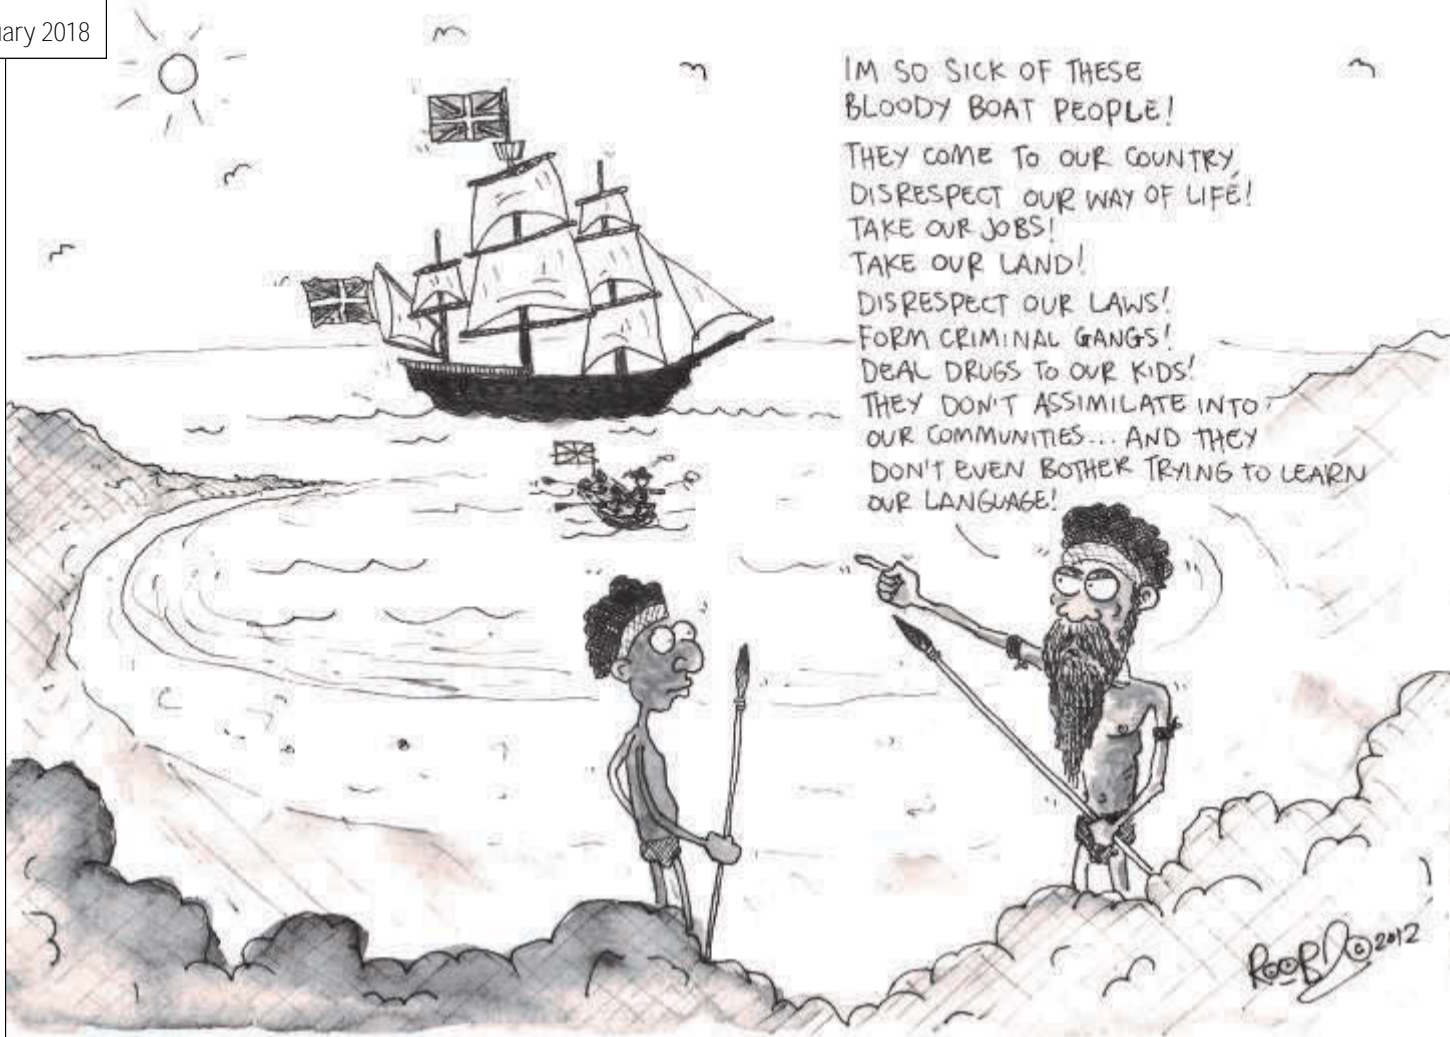 uary 2018
IM SO SICK OF THESE
BLOODY BOAT PEOPLE!
THEY COME TO OUR COUNTRY,
DISRESPECT OUR WAY OF LIFE!
TAKE OUR JOBS!
TAKE OUR LAND!
DISRESPECT OUR LAWS!
FORM CRIMINAL GANGS!
DEAL DRUGS TO OUR KIDS!
THEY DON'T ASSIMILATE INTO
OUR COMMUNITIES... AND THEY
DON'T EVEN BOTHER TRYING TO LEARN
OUR LANGUAGE!
©2012